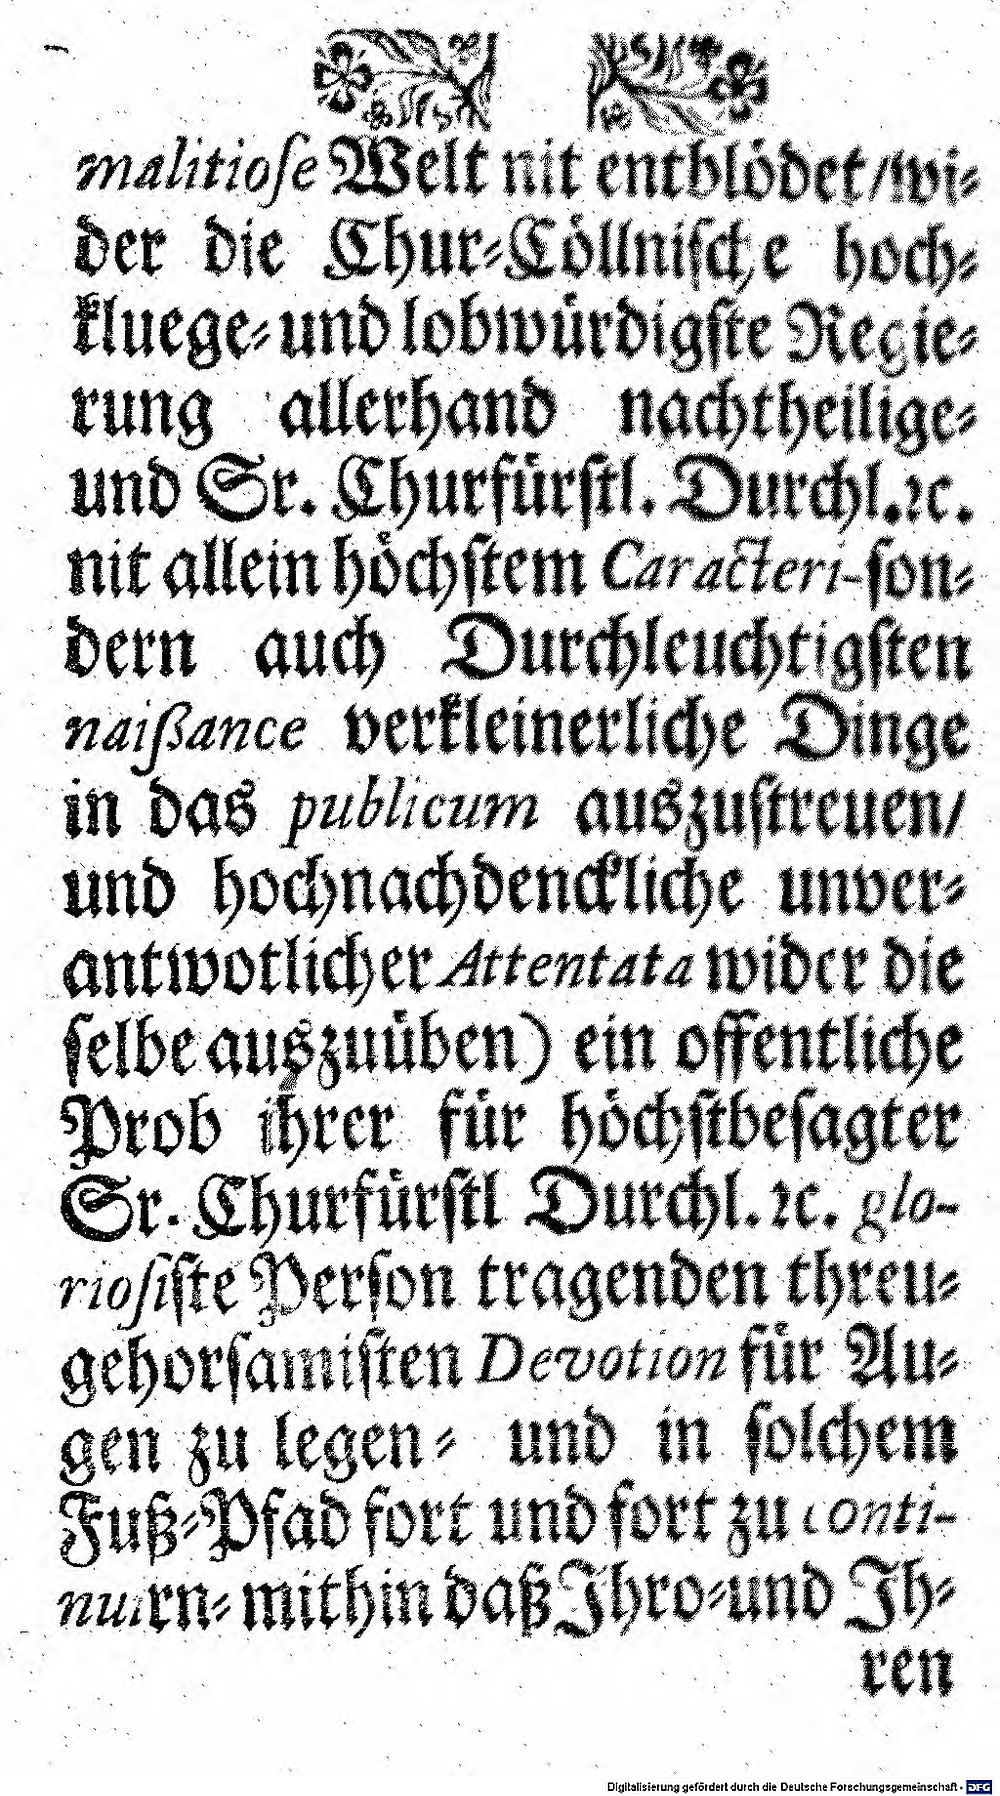 malitioſe Welt nit entblödet/wi⸗
der die Chur⸗Cöllniſche hoch⸗
kluege⸗und lobwürdigſte Regie⸗
rung allerhand nachtheilige⸗
und Sr. Churfürſtl. Durchl.ꝛc.
nit allein höchſtem Caracteri-ſon⸗
dern auch Durchleuchtigſten
naiſsance verkleinerliche Dinge
in das publicum auszuſtreuen/
und hochnachdenckliche unver⸗
antwotlicher Attentata wider die
ſelbe auszuüben) ein offentliche
Prob ihrer für höchſtbeſagter
Sr. Churfürſtl Durchl. ꝛc. glo-
rioſiſte Perſon tragenden threu⸗
gehorſamiſten Devotion für Au⸗
gen zu legen⸗ und in ſolchem
Fuß⸗Pfad fort und fort zu conti-
nuirn⸗ mithin daß Ihro⸗und Ih⸗
ren
Digitalisierung gefördert durch die Deutsche Forschungsgemeinschaft - DFG